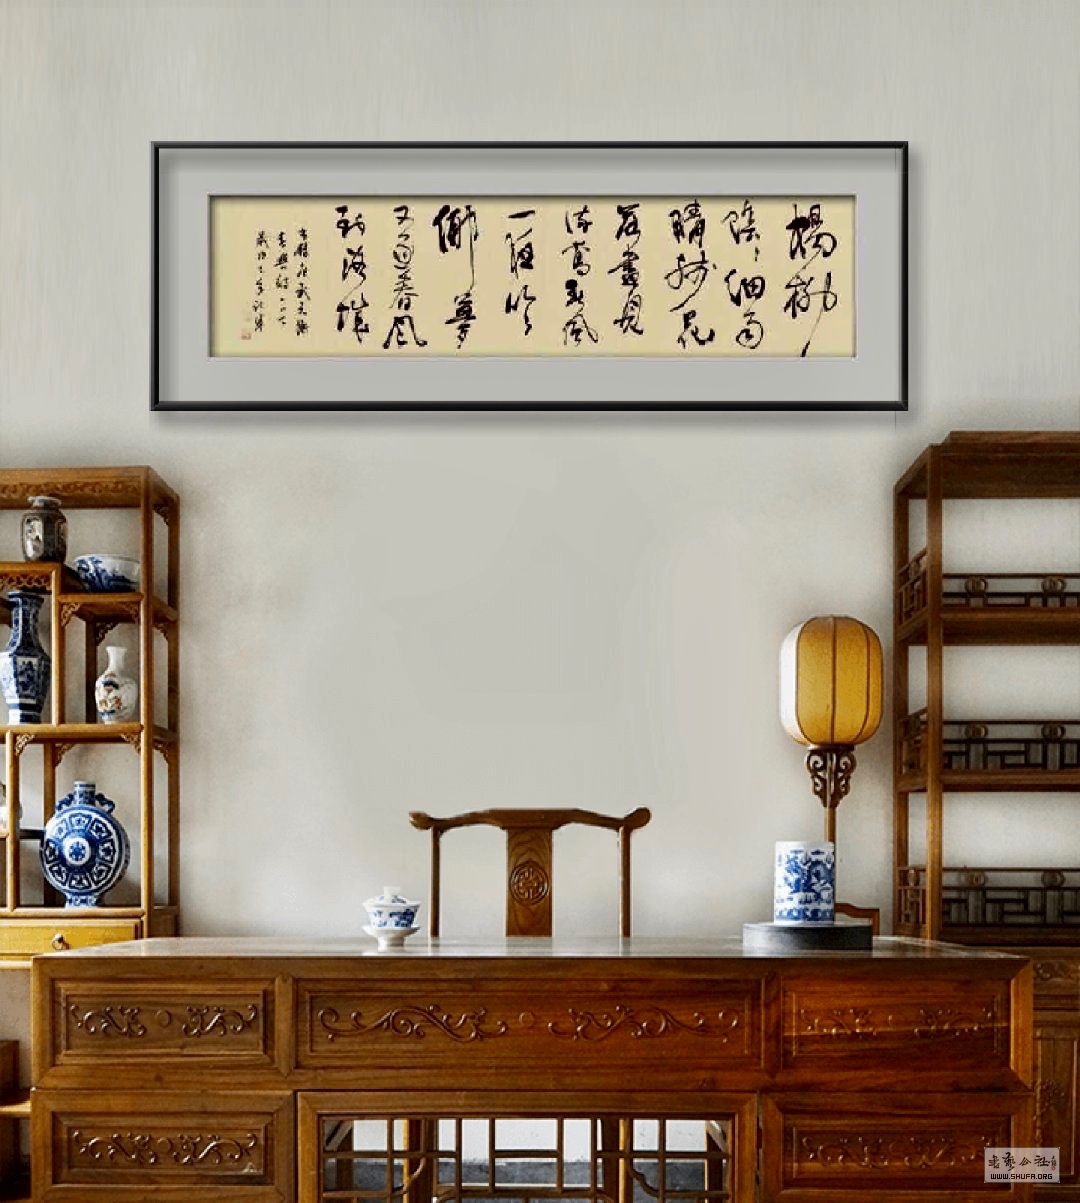 楊柳
陰陰細雨
晴殘花
落盡見
流鶯春風
一夜吹
鄉夢
又逐春風
到洛城
唐武元衡
春興詩一首
書藝公社
WWW.SHUFA.ORG